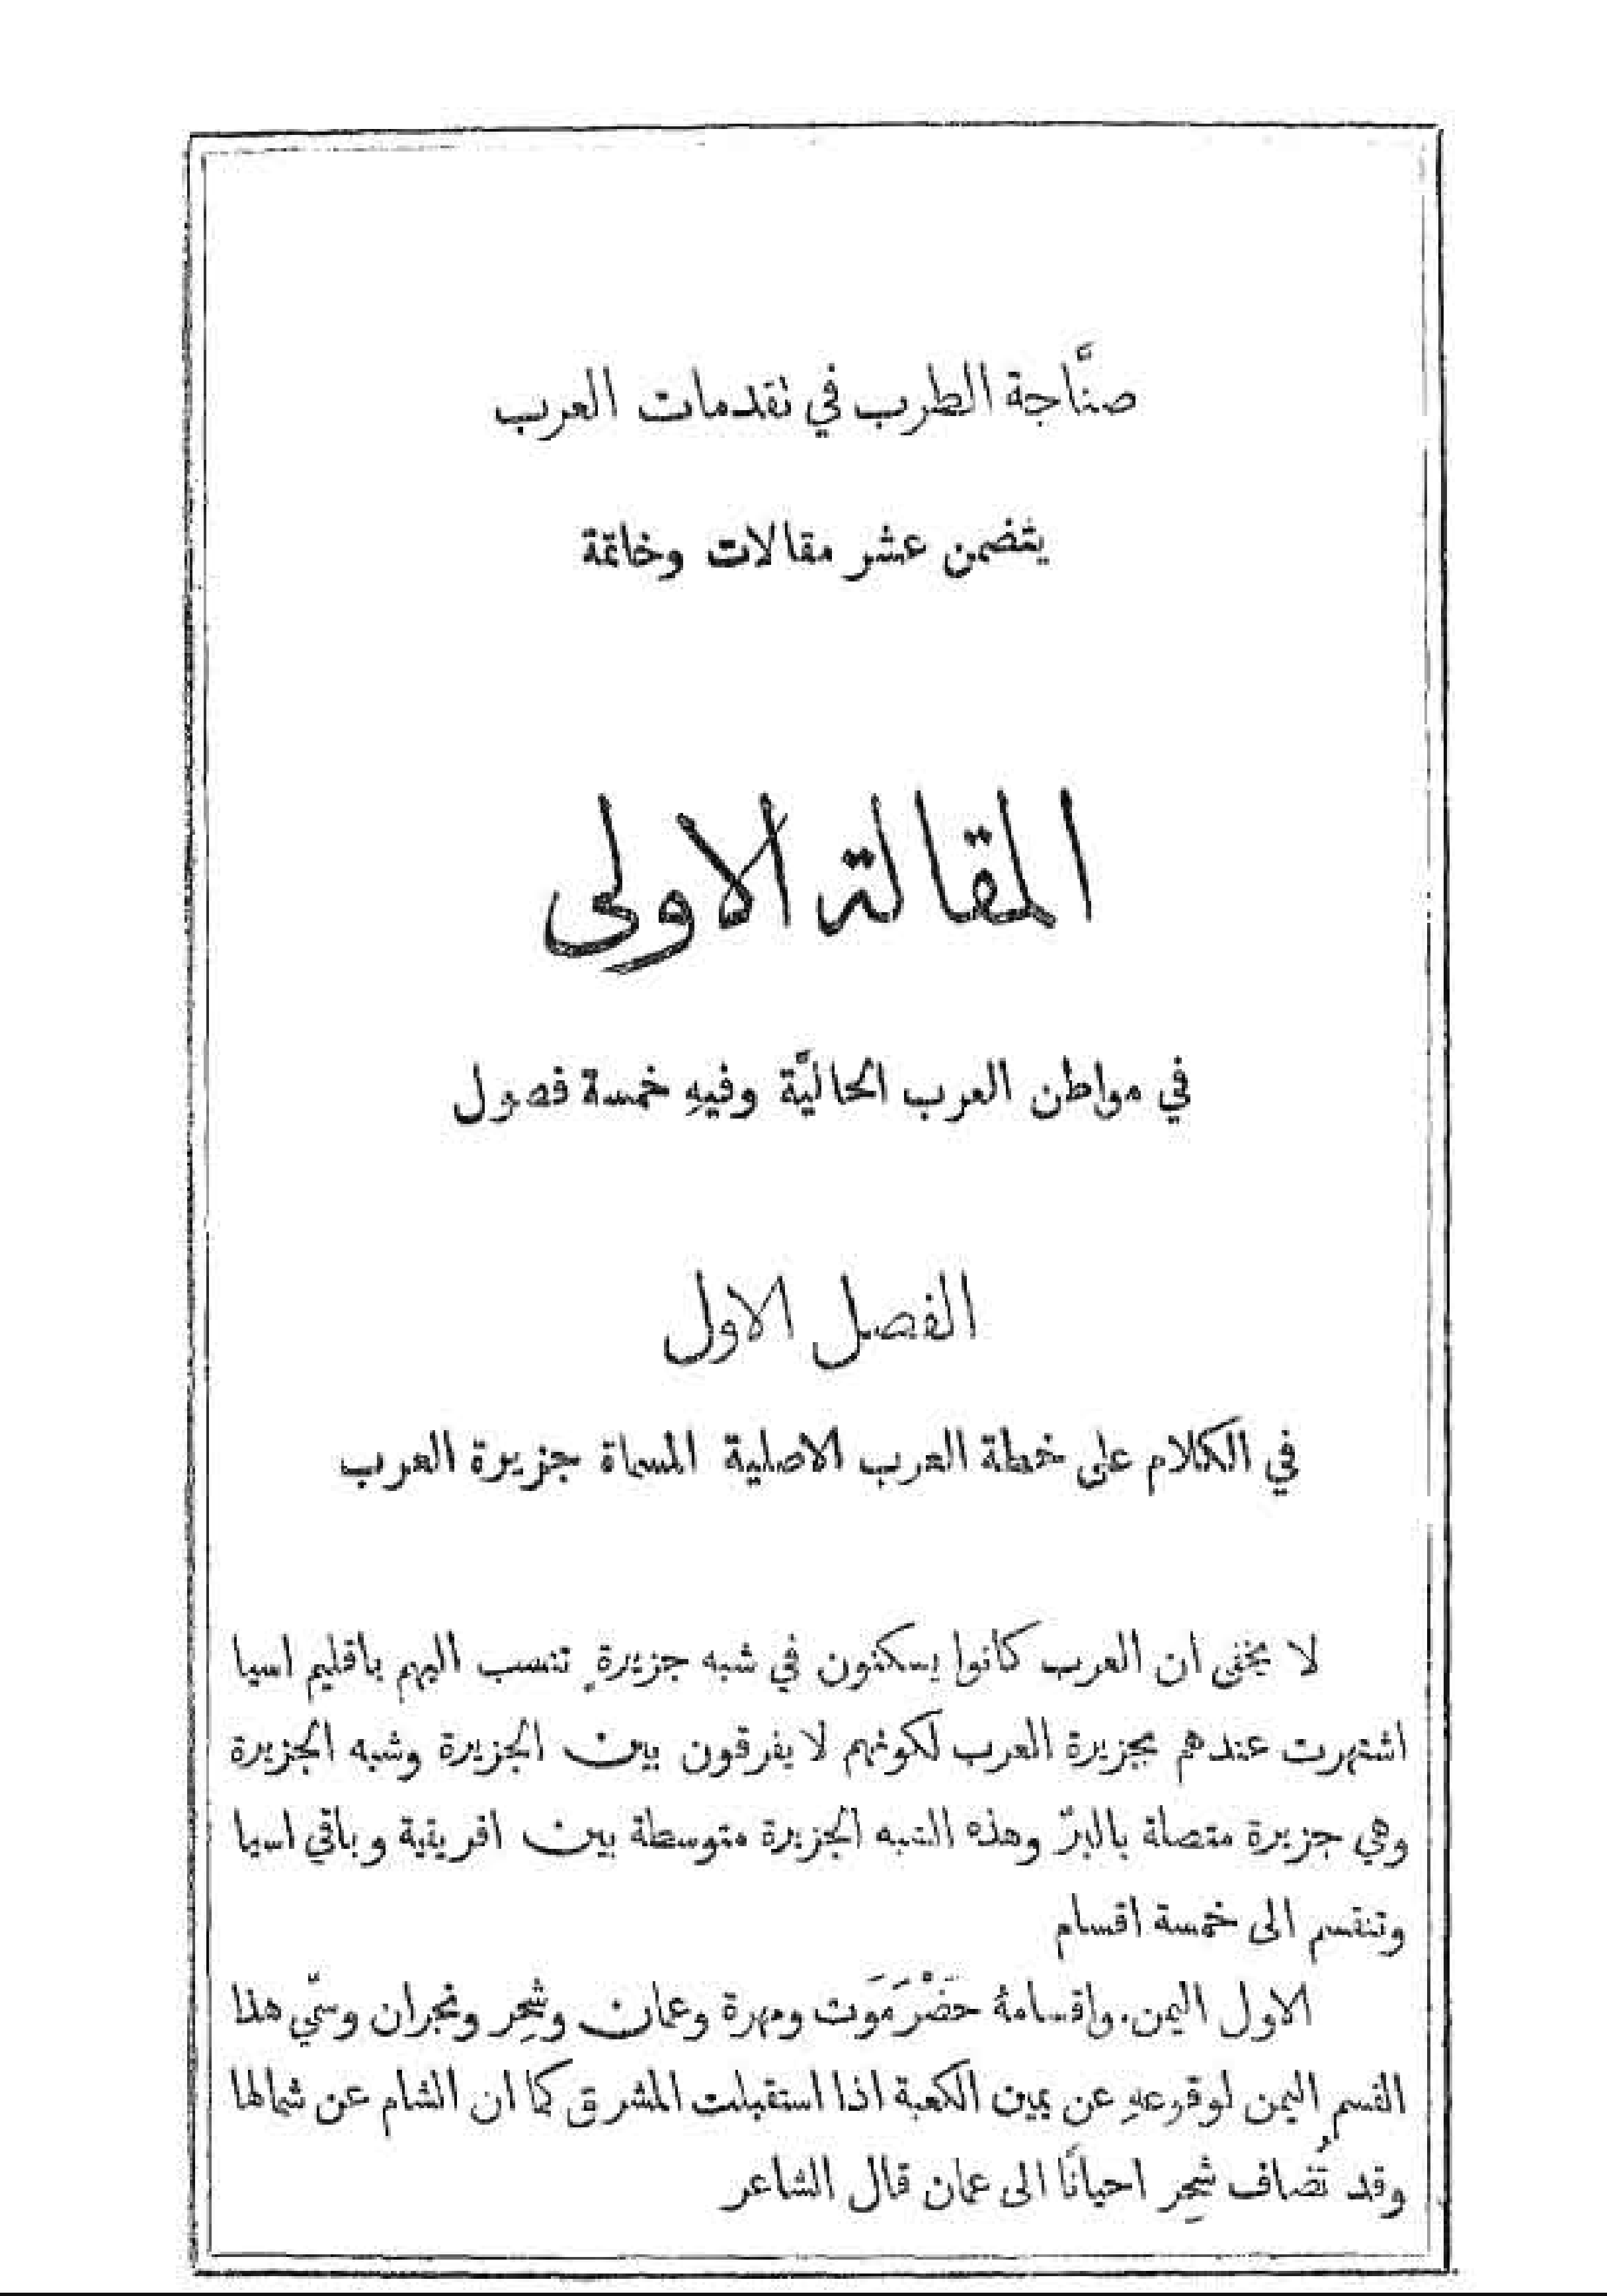 صنَّاجة الطرب في تقدمات العرب
يتضمن عشر مقالات وخاتمة
المقالة الاولى
في مواطن العرب الحاليَّة وفيهِ خمسة فصول
الفصل الاول
في الكلام على خطة العرب الاصلية المسماة جزيرة العرب
لا يخفى ان العرب كانوا يسكنون في شبه جزيرةٍ تنسب اليهم باقليم اسيا
اشتهرت عندهم بجزيرة العرب لكونهم لا يفرقون بين الجزيرة وشبه الجزيرة
وهي جزيرة متصلة بالبرّ وهذه الشبه الجزيرة متوسطة بين افريقية وباقي اسيا
وتنقسم الى خمسة اقسام
الاول اليمن. واقسامهُ حَضْرَمَوت ومهرة وعمان وشِحِر ونجران وسمّي هذا
القسم اليمن لوقوعهِ عن يمين الكعبة اذا استقبلت المشرق كما ان الشام عن شمالها
وقد تُضاف شِحِر احيانًا الى عمان قال الشاعر